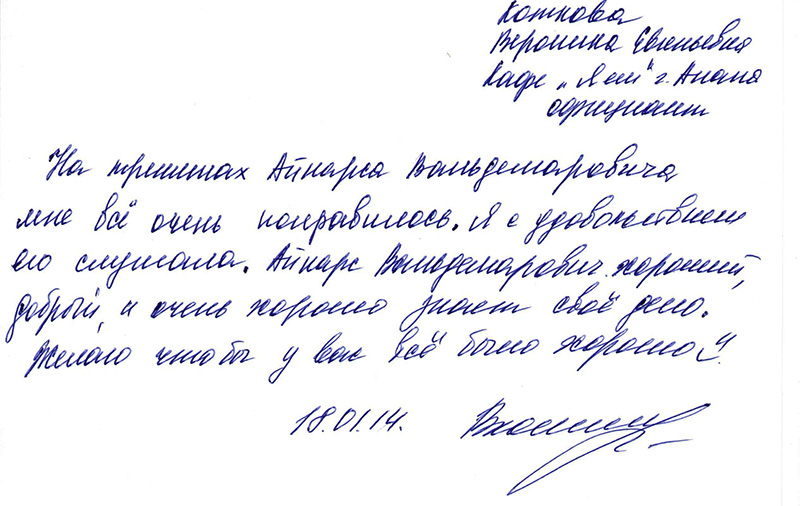 Кошкова
Вероника Евгеньевна
Кафе „Я ем" г. Анапа
официант
На тренингах Айнарса Вальдемаровича
мне всё очень понравилось. Я с удовольствием
его слушала. Айнарс Вальдемарович хороший,
добрый, и очень хорошо знает своё дело.
Желаю чтобы у вас всё было хорошо
18.01.14.